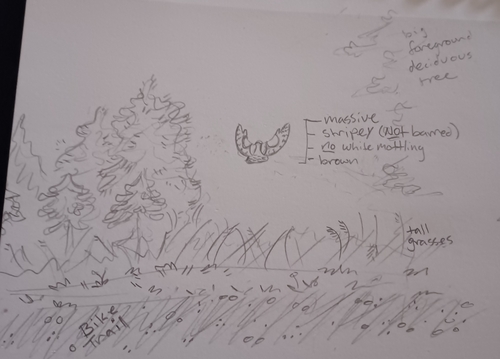 big
foreground
deciduous
tree
massive
stripey (Not barred)
no while mottling
brown
tall
grasses
Bike
Trail